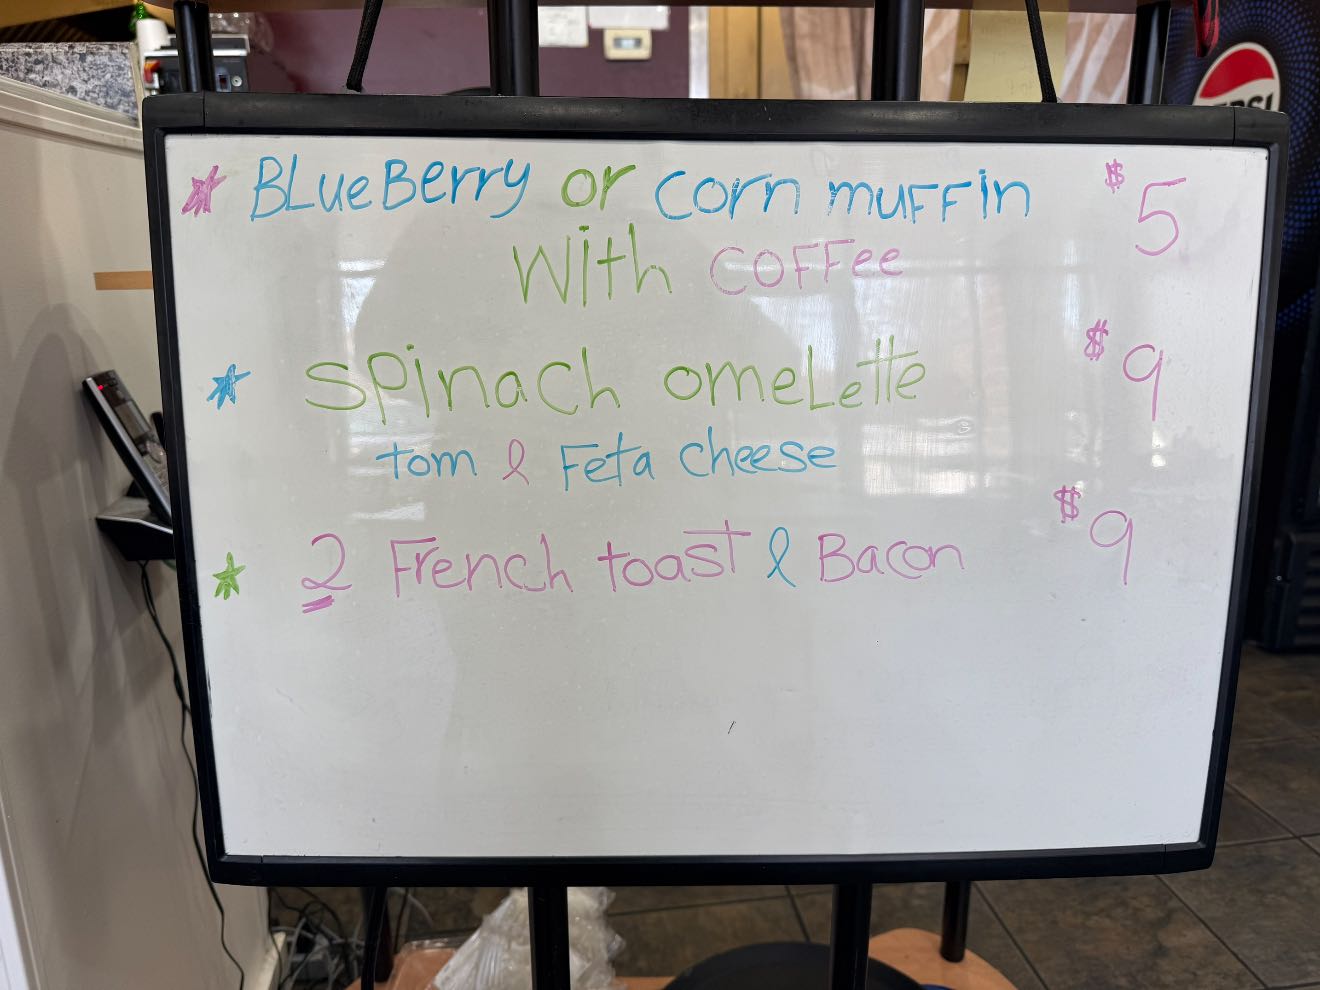 BLueBerry or corn muffin $5
With coffee
Spinach omeLette $9
tom & Feta cheese
2 French toast & Bacon $9
PEPSI